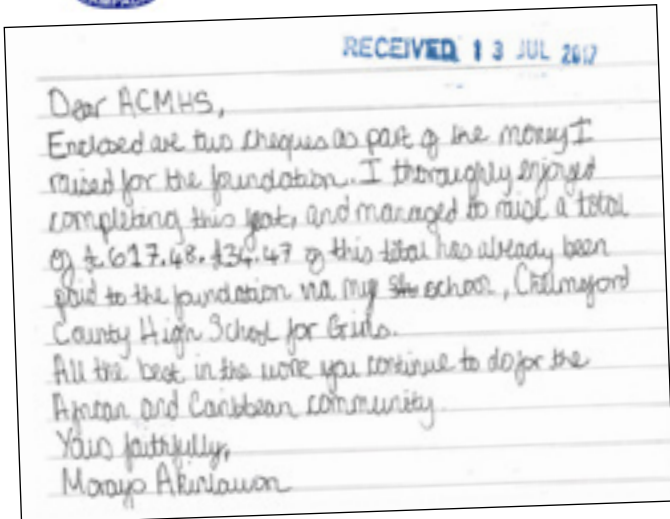 RECEIVED 13 JUL 2017
Dear ACMHS,
Enclosed are two cheques as part of the money I
raised for the foundation. I thoroughly enjoyed
completing this feat, and managed to raise a total
of £617.48. £34.47 of this total has already been
paid to the foundation via my school, Chelmsford
County High School for Girls.
All the best in the work you continue to do for the
African and Caribbean community.
Yours faithfully,
Morayo Akinlawon